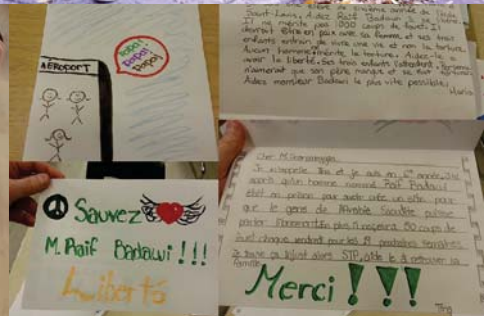 papa!
papa!
papa!
AÉROPORT
élève de sixième année de l'école
Saint-Louis. Aidez Raïf Badawi à se libérer.
Il ne mérite pas 1000 coups de fouet. Il
devrait être en paix avec sa femme, et ses trois
enfants entrain de vivre une vie et non la torture.
Aucun homme mérite la torture. Aidez-le à
avoir la liberté. Ses trois enfants l'attendent. Personne
n'aimerait que son père manque et se fait
Aidez monsieur Badawi le plus vite possible.
Maria
Sauvez
M. Raif Badawi !!!
Liberté
Cher M.
Je m'appelle Tina et je suis en 6e année. J'ai
appris qu'un homme nommé Raif Badawi
était en prison pour avoir créé un site pour
que le gens de l'Arabie Saoudite puisse
parler. Non seulement plus il recevra 50 coups de
fouet chaque vendredi pour les 19 prochaines semaines.
Je trouve ça injust alors STP, aide le à retrouver sa
famille
Merci !!!
Tina